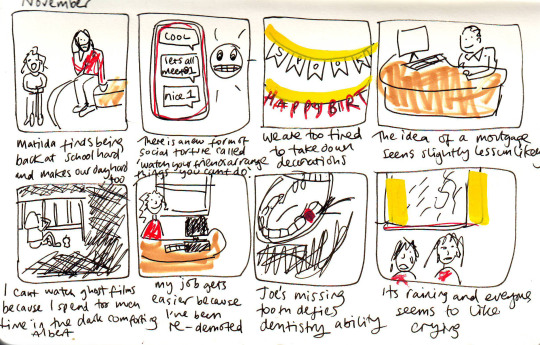 November
COOL
lets all
meet@1
nice 1
SPOOKY
HAPPY BIRT
Matilda finds being
back at school hard
and makes our day hard
too
There is a new form of
social torture called
'watch your friends arrange
things you cant do'
we are too tired
to take down
decorations
The idea of a mortgage
seems slightly less unlikely
I cant watch ghost films
because I spend too much
time in the dark comforting
Albert
my job gets
easier because
I've been
re-demoted
Joe's missing
tooth defies
dentistry ability
Its raining and everyone
seems to like
crying